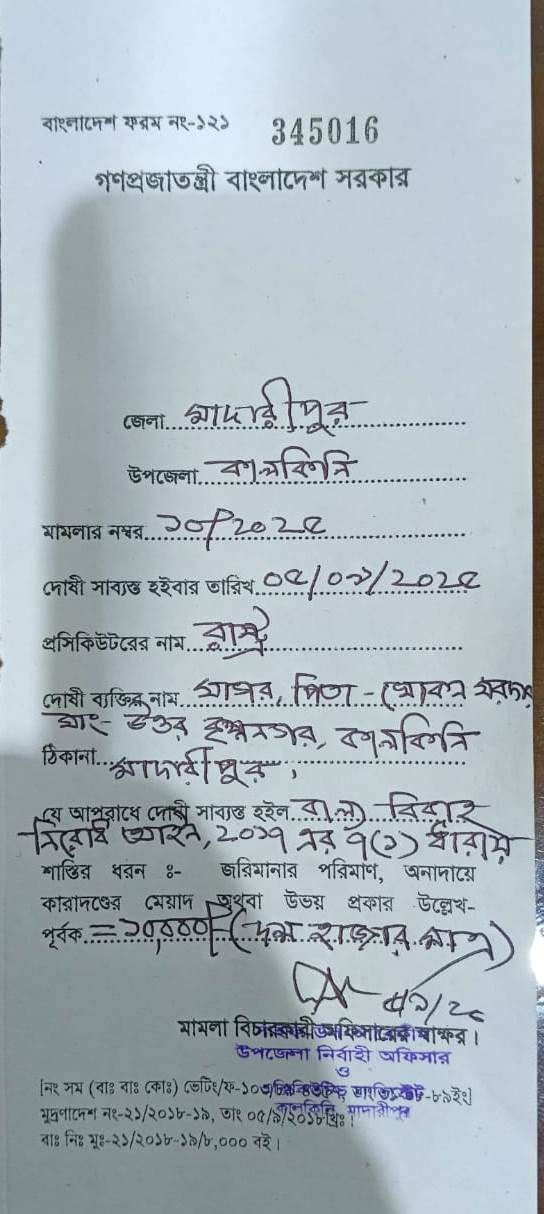 বাংলাদেশ ফরম নং-১২১ 345016
গণপ্রজাতন্ত্রী বাংলাদেশ সরকার
জেলা.. মাদারীপুর
উপজেলা.. কালকিনি
মামলার নম্বর.. ১০/2০2৫
দোষী সাব্যস্ত হইবার তারিখ.. ০৫/০৯/2০2৫
প্রসিকিউটরের নাম.. রাষ্ট্র
দোষী ব্যক্তির নাম.. সাগর, পিতা -
সাং- উত্তর কৃষ্ণনগর, কালকিনি
ঠিকানা.. মাদারীপুর,
যে অপরাধে দোষী সাব্যস্ত হইল..
নিরোধ আইন, 2০১৭ এর ৭(১) ধারায়
শাস্তির ধরন ঃ- জরিমানার পরিমাণ, অনাদায়ে
কারাদণ্ডের মেয়াদ অথবা উভয় প্রকার উল্লেখ-
পূর্বক.. = ১০,০০০/- (দশ হাজার মাত্র)
মামলা বিচারকারী অফিসারের স্বাক্ষর।
উপজেলা নির্বাহী অফিসার
ও
এক্সিকিউটিভ ম্যাজিস্ট্রেট
কালকিনি, মাদারীপুর
মুদ্রণাদেশ নং-২১/২০১৮-১৯, তাং ০৫/৯/২০১৮খ্রিঃ।
বাঃ নিঃ মুঃ-২১/২০১৮-১৯/৮,০০০ বই।